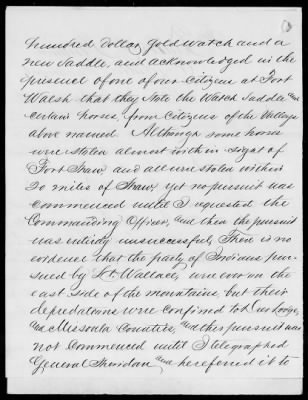 hundred dollar gold watch and a
new saddle, and acknowledged in the
presence of one of our citizens at Fort
Walsh that they stole the watch saddle and
certain horses, from citizens of the Valleys
above named. Although some horses
were stolen almost within sight of
Fort Shaw and all were stolen within
20 miles of Shaw, yet no pursuit was
commenced until I requested the
Commanding Officer, and then the pursuit
was entirely unsuccessful, There is no
evidence that the party of Indians pur-
sued by Lt. Wallace, were ever on the
east side of the mountains, but their
depredations were confined to Deer Lodge,
and Missoula Counties, and this pursuit was
not commenced until I telegraphed
General Sheridan and he referred it to